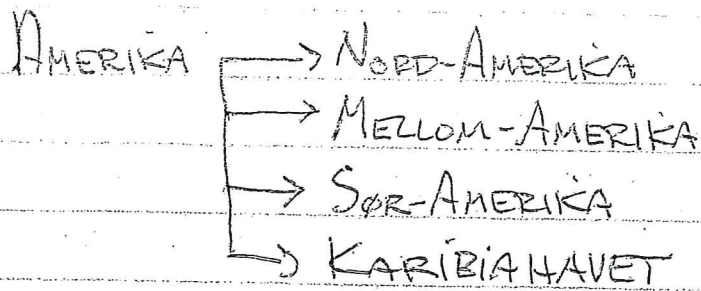 AMERIKA → NORD-AMERIKA
→ MELLOM-AMERIKA
→ SØR-AMERIKA
→ KARIBIAHAVET